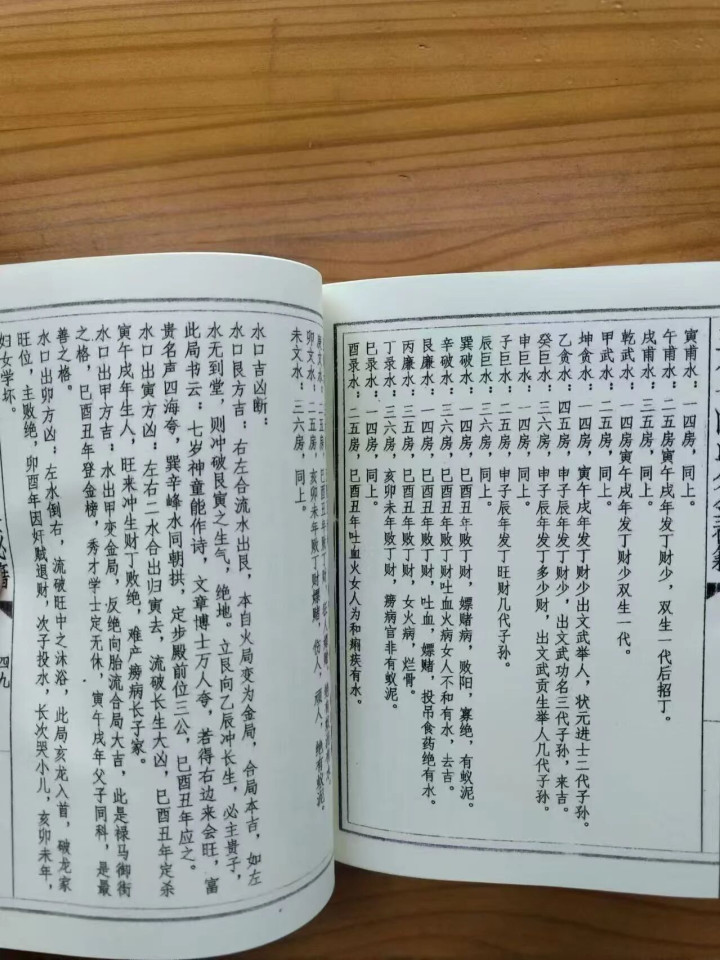 寅甫水：一四房，同上。
午甫水：二五房寅午戌年发丁财少，双生一代后招丁。
戌甫水：三五房，同上。
乾武水：一四房寅午戌年发丁财少双生一代。
甲武水：二五房，同上。
坤贪水：一四房，寅午戌年发丁财少出文武举人，状元进士二代子孙。
乙贪水：四五房，申子辰年发丁财少，出文武功名三代子孙，来吉。
癸巨水：三六房，申子辰年发丁多少财，出文武贡生举人几代子孙。
申巨水：一四房，同上。
子巨水：二五房，申子辰年发丁旺财几代子孙。
辰巨水：三六房，同上。
巽破水：一四房，巳酉丑年败丁财，嫖赌病，败阳，寡绝，有蚁泥。
辛破水：一四房，巳酉丑年败丁财吐血火病女人不和有水，去吉。
艮廉水：一四房，巳酉丑年败丁财，吐血，嫖赌，投吊食药绝有水。
丙廉水：二五房，巳酉丑年败丁财，女火病，烂骨。
丁录水：三六房，亥卯未年败丁财，痨病官非有蚁泥。
巳录水：一四房，同上。
酉录水：二五房，巳酉丑年吐血火女人为和痢疾有水。
卯文水：二五房，亥卯未年败丁财嫖赌，伤人，顽人，绝有蚁泥。
未文水：三六房，同上。
水口吉凶断：
水口艮方吉：右左合流水出艮，本自火局变为金局，合局本吉，如左
水无到堂，则冲破艮寅之生气，绝地。立艮向乙辰冲长生，必主贵子，
此局书云：七岁神童能作诗，文章博士万人夸，若得右边来会旺，富
贵名声四海夸，巽辛峰水同朝拱，定步殿前位三公，巳酉丑年应之。
水口出寅方凶：左右二水合出归寅去，流破长生大凶，巳酉丑年定杀
寅午戌年生人，旺来冲生财丁败绝，难产痨病长子家。
水口出甲方吉：水出甲变金局，反绝向胎流合局大吉，此是禄马御街
之格，巳酉丑年登金榜，秀才学士定无休，寅午戌年父子同科，是最
善之格。
水口出卯方凶：左水倒右，流破旺中之沐浴，此局亥龙入首，破龙家
旺位，主败绝，卯酉年因奸赋退财，次子投水，长次哭小儿，亥卯未年，
妇女学坏。
四九